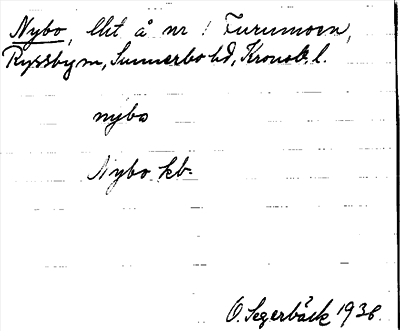 Nybo, lht å nr 1 Furumoen,
Ryssby sn, Sunnerbo hd, Kronob. l.
nybo
Nybo kb.
O. Segerbäck 1936.